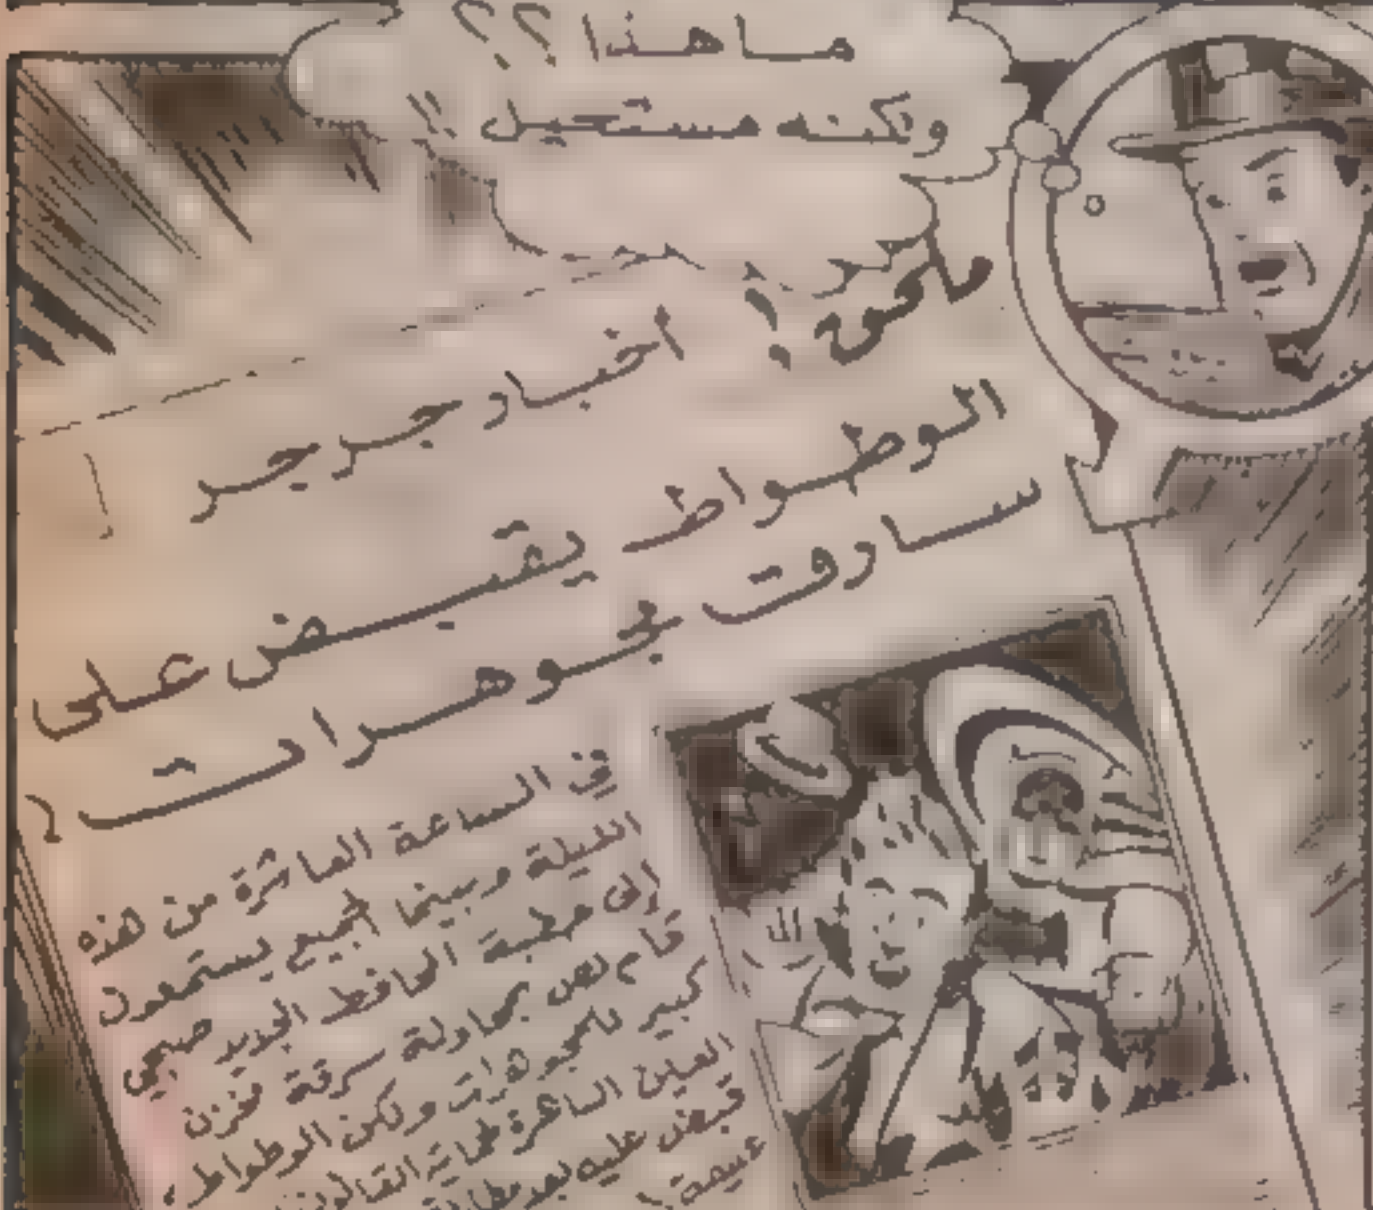 ما هذا ؟؟
ولكنه مستحيل !!
ملحق ! أخبار جرجر !
الوطواط يقبض على
سارق مجوهرات !
في الساعة العاشرة من هذه
الليلة وبينما الجميع يستمعون
إلى خطبة المحافظ الجديد صبحي
قام لص بمحاولة سرقة مخزن
كبير للمجوهرات ولكن الوطواط،
العين الساهرة لحماية القانون
قبض عليه بعد
عنيفة